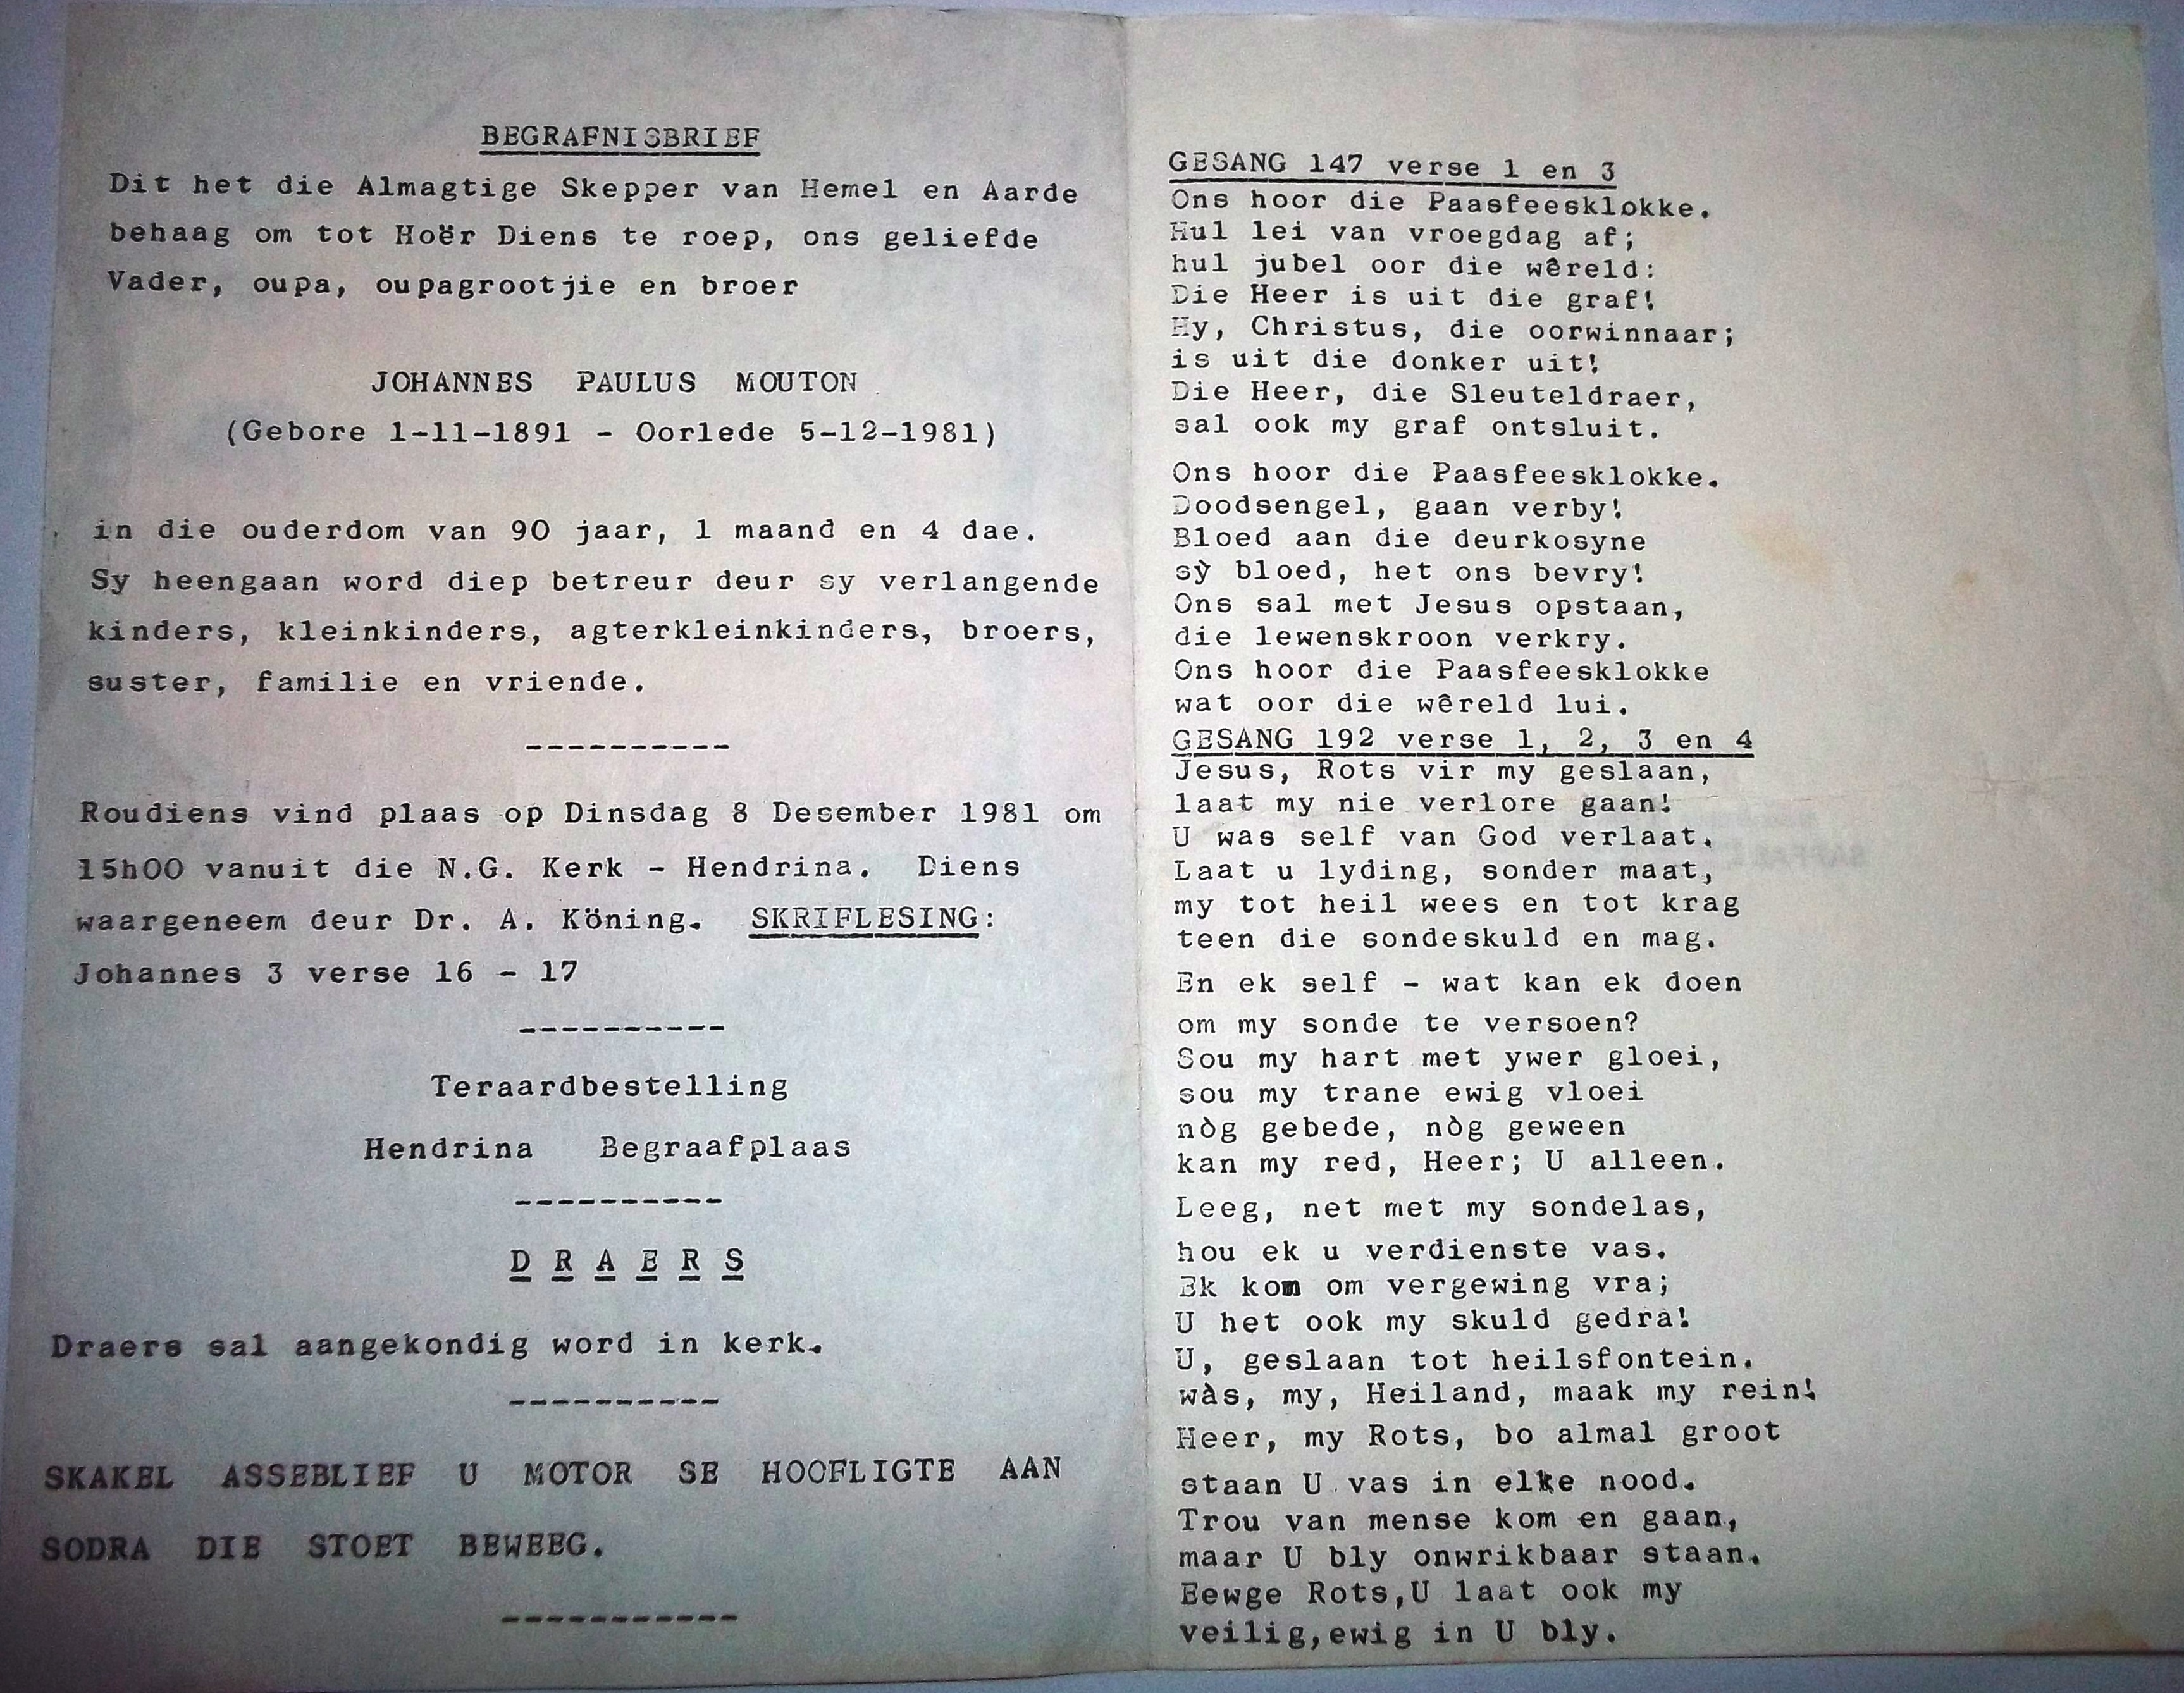 BEGRAFNISBRIEF
Dit het die Almagtige Skepper van Hemel en Aarde
behaag om tot Hoër Diens te roep, ons geliefde
Vader, oupa, oupagrootjie en broer
JOHANNES PAULUS MOUTON
(Gebore 1-11-1891 - Oorlede 5-12-1981)
in die ouderdom van 90 jaar, 1 maand en 4 dae.
Sy heengaan word diep betreur deur sy verlangende
kinders, kleinkinders, agterkleinkinders, broers,
suster, familie en vriende.
----------
Roudiens vind plaas op Dinsdag 8 Desember 1981 om
15h00 vanuit die N.G. Kerk - Hendrina. Diens
waargeneem deur Dr. A. Köning. SKRIFLESING:
Johannes 3 verse 16 - 17
----------
Teraardbestelling
Hendrina Begraafplaas
----------
D R A E R S
Draers sal aangekondig word in kerk.
----------
SKAKEL ASSEBLIEF U MOTOR SE HOOFLIGTE AAN
SODRA DIE STOET BEWEEG.
-----------
GESANG 147 verse 1 en 3
Ons hoor die Paasfeesklokke.
Hul lei van vroegdag af;
hul jubel oor die wêreld:
Die Heer is uit die graf!
Hy, Christus, die oorwinnaar;
is uit die donker uit!
Die Heer, die Sleuteldraer,
sal ook my graf ontsluit.
Ons hoor die Paasfeesklokke.
Doodsengel, gaan verby!
Bloed aan die deurkosyne
sỳ bloed, het ons bevry!
Ons sal met Jesus opstaan,
die lewenskroon verkry.
Ons hoor die Paasfeesklokke
wat oor die wêreld lui.
GESANG 192 verse 1, 2, 3 en 4
Jesus, Rots vir my geslaan,
laat my nie verlore gaan!
U was self van God verlaat.
Laat u lyding, sonder maat,
my tot heil wees en tot krag
teen die sondeskuld en mag.
En ek self - wat kan ek doen
om my sonde te versoen?
Sou my hart met ywer gloei,
sou my trane ewig vloei
nòg gebede, nòg geween
kan my red, Heer; U alleen.
Leeg, net met my sondelas,
hou ek u verdienste vas.
Ek kom om vergewing vra;
U het ook my skuld gedra!
U, geslaan tot heilsfontein.
wàs, my, Heiland, maak my rein!
Heer, my Rots, bo almal groot
staan U vas in elke nood.
Trou van mense kom en gaan,
maar U bly onwrikbaar staan.
Eewge Rots,U laat ook my
veilig,ewig in U bly.